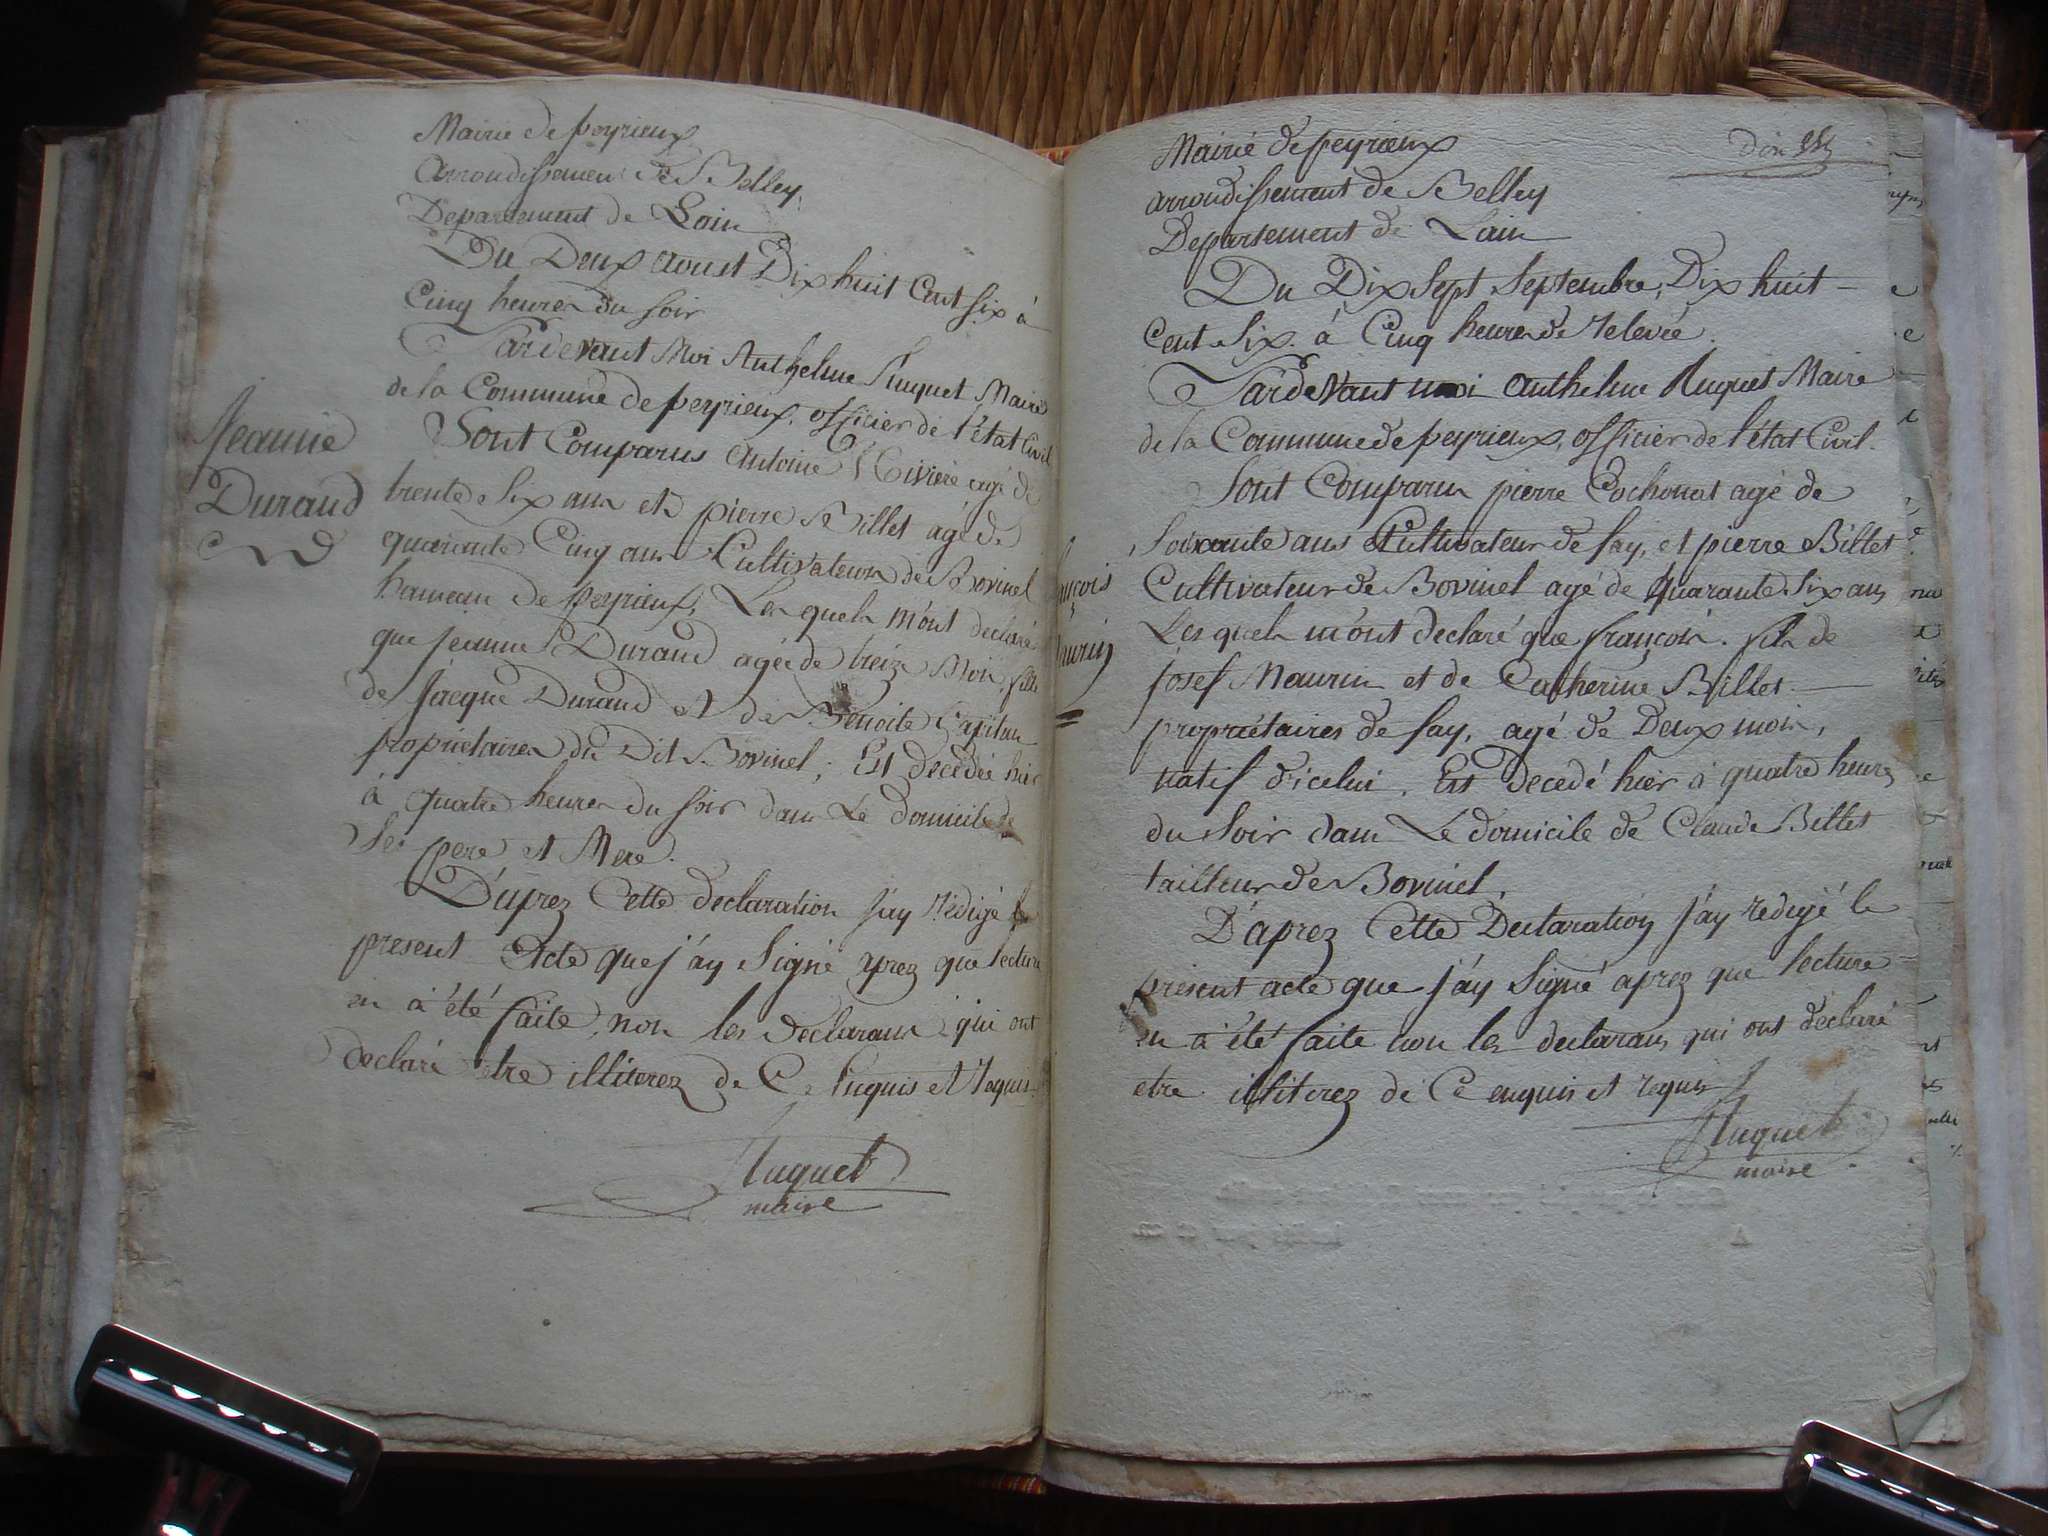 Mairie de peyrieux
arrondissement de Belley,
Departement de Lain
Du Deux aoust Dix huit Cent Six à
Cinq heures du soir
Pardevant Moi Anthelme Huquet Maire
de la Commune de peyrieux, officier de l'état Civil
Sont Comparus Antoine Riviere agé de
Jeanne
Durand
trente Six ans et pierre Billet agé de
quarante Cinq ans Cultivateurs de Bovinel
hameau de peyrieux, Les quels m'ont declaré
que jeanne Durand agée de treize Mois, fille
de Jacque Durand et de Benoite Capitan
propriétaires du Dit Bovinel; Est decedée hier
à quatre heures du soir dans Le domicile de
Ses pere et Mere.
D'aprez Cette declaration J'ay rédigé le
present Acte que j'ay Signé aprez que lecture
en à été faite, non les declarans qui ont
declaré etre illiterez de Ce enquis et requis.
Huquet
maire
Mairie de peyrieux
arrondissement de Belley
Departement de Lain
Du Dix Sept Septembre, Dix huit
cent Six. à Cinq heures de relevée.
Pardevant moi Anthelme Huquet Maire
de la Commune de peyrieux, officier de l'état Civil.
Sont Comparus pierre Cochonat agé de
Soixante ans Cultivateur de fay, et pierre Billet
Cultivateur de Bovinel agé de Quarante Six ans
Les quels m'ont declaré que françois. fils de
josef Maurin et de Catherine Billet.
propriétaires de fay, agé de Deux mois,
natif d'icelui. Est Decedé hier à quatre heures
du Soir dans Le domicile de Claude Billet
tailleur de Bovinel.
D'aprez Cette Déclaration J'ay redigé le
présent acte que j'ay Signé aprez que lecture
en à été faite non les declarans qui ont declaré
etre illiterez de Ce enquis et requis
Huquet
maire